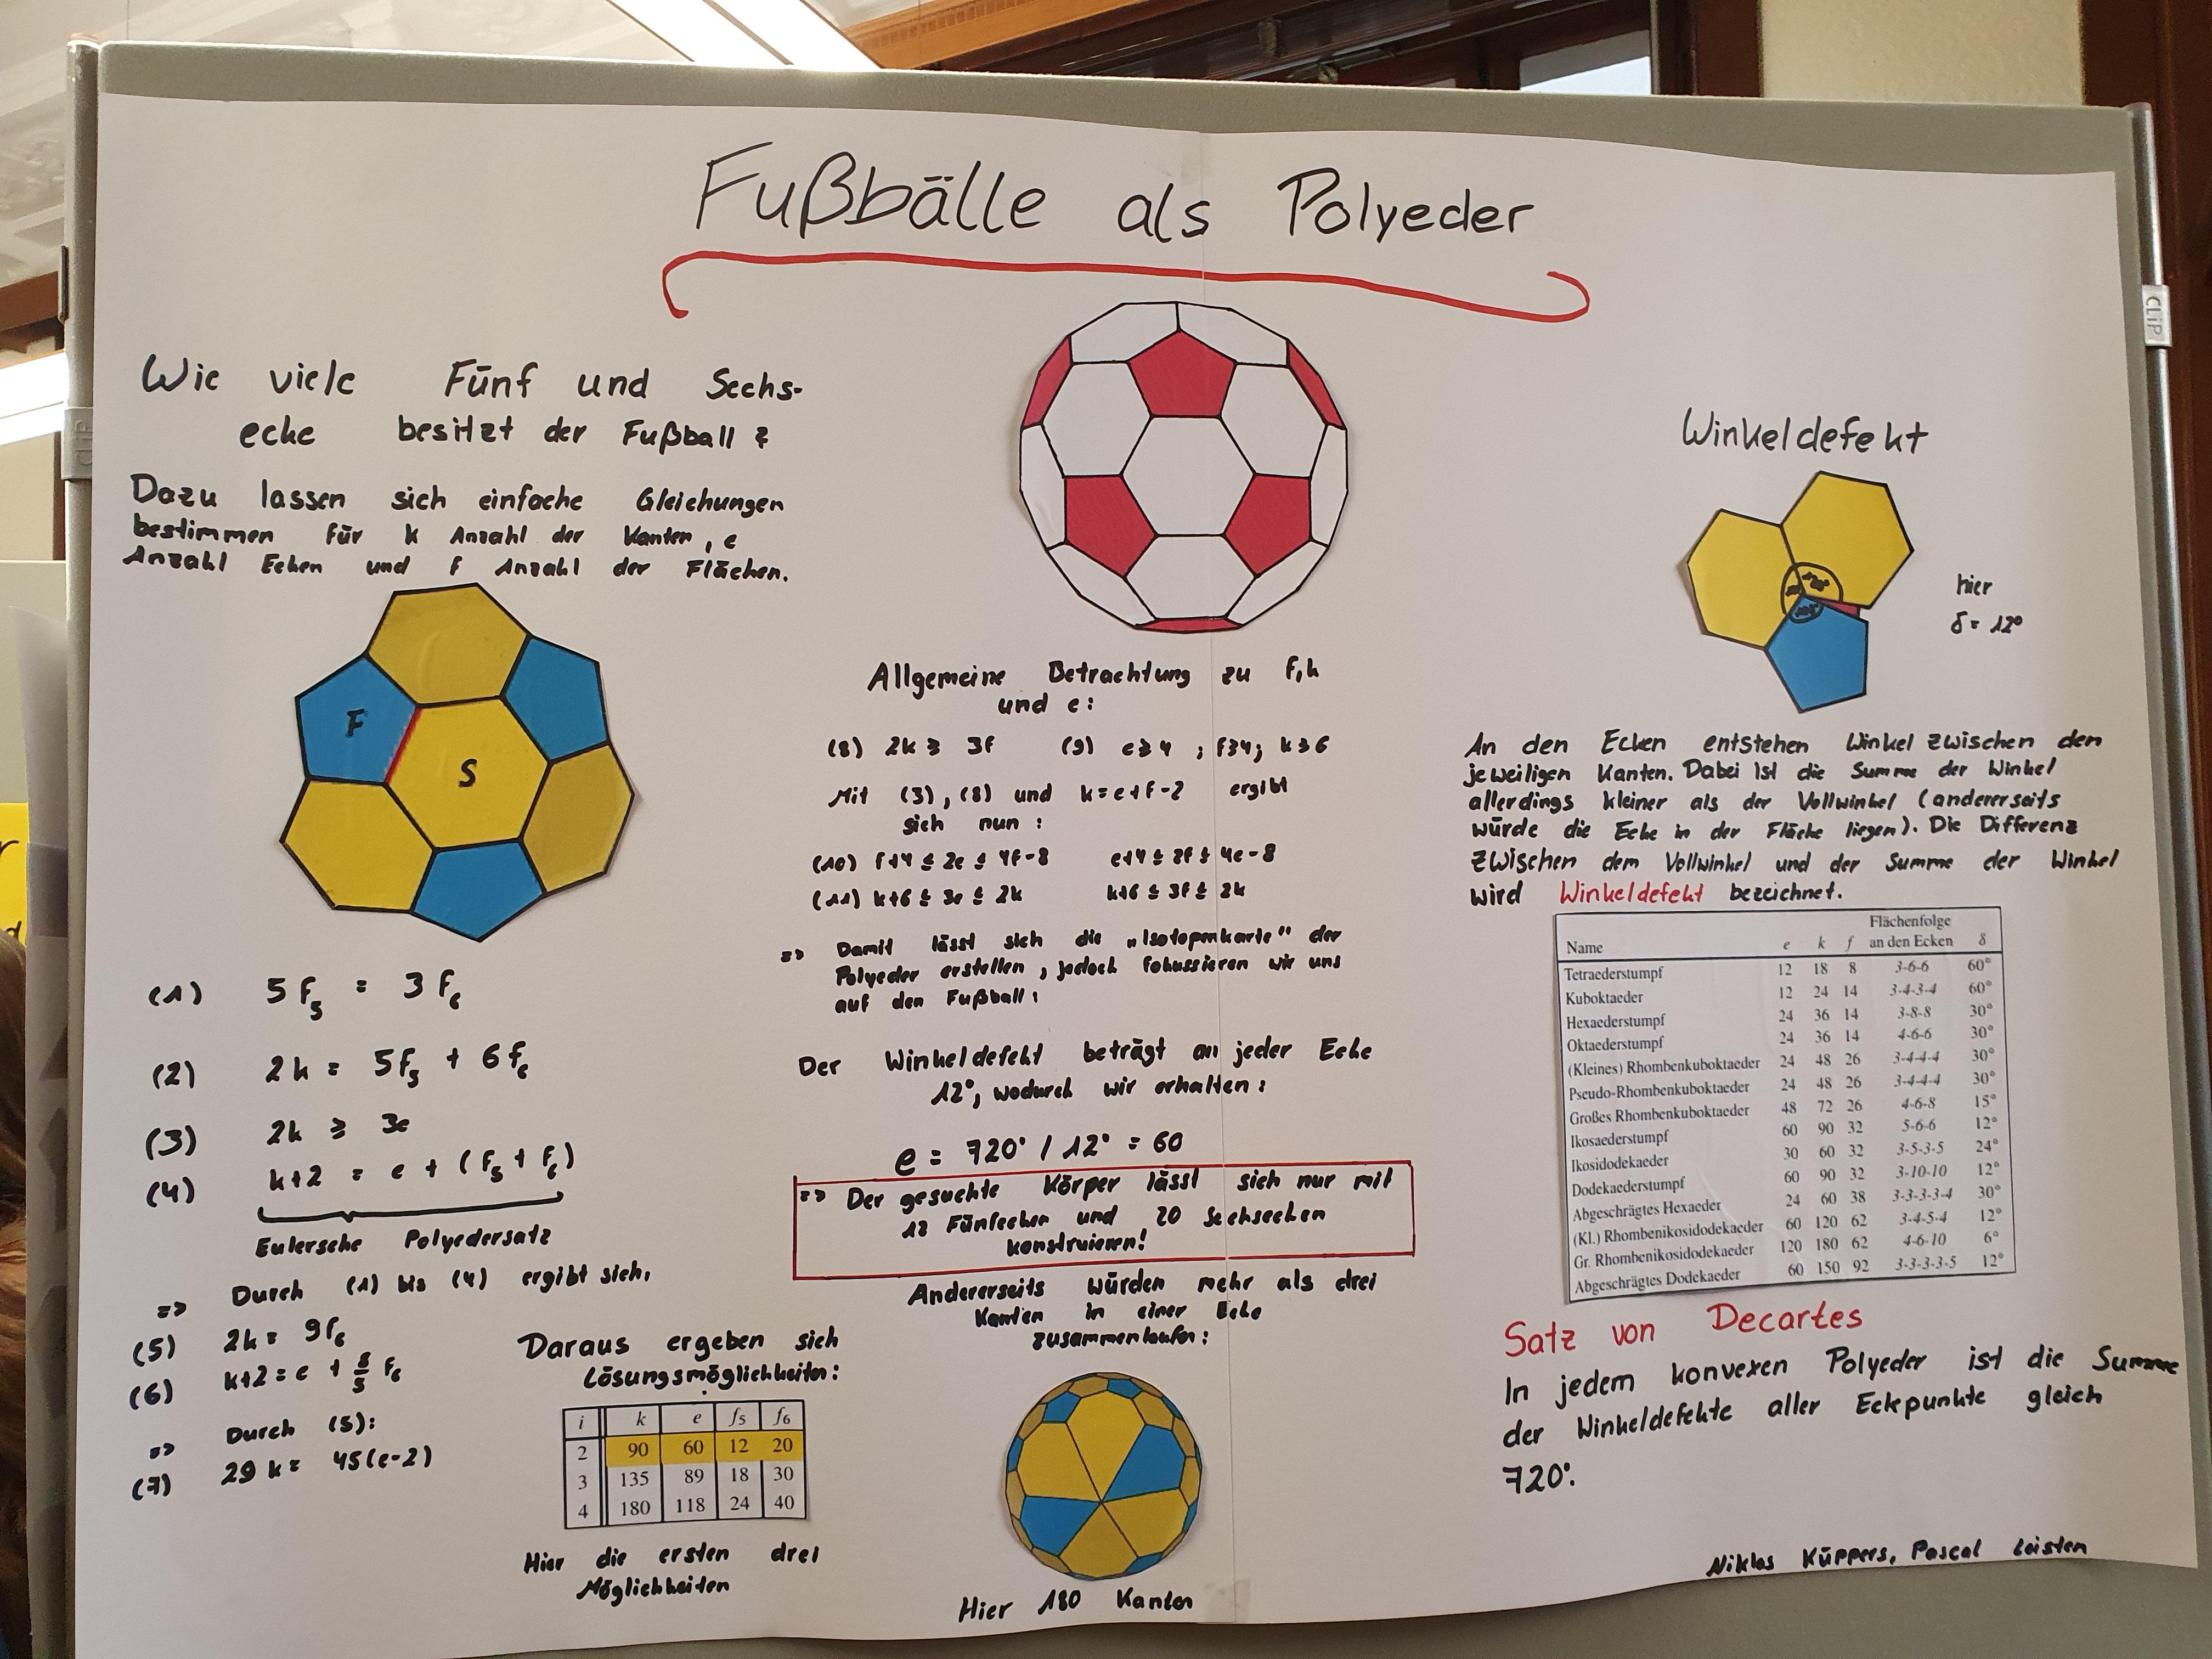 Fußbälle als Polyeder
Wie viele Fünf und Sechs-
ecke besitzt der Fußball ?
Dazu lassen sich einfache Gleichungen
bestimmen für k Anzahl der Kanten, e
Anzahl Ecken und f Anzahl der Flächen.
F
S
(1) 5 f₅ = 3 f₆
(2) 2k = 5f₅ + 6f₆
(3) 2k ≥ 3e
(4) k+2 = e + (f₅ + f₆)
Eulersche Polyedersatz
=> Durch (1) bis (4) ergibt sich,
(5) 2k = 9f₆
(6) k+2 = e + 8/5 f₆
=> Durch (5):
(7) 29 k = 45(e-2)
Daraus ergeben sich
Lösungsmöglichkeiten:
i k e f₅ f₆
2 90 60 12 20
3 135 89 18 30
4 180 118 24 40
Hier die ersten drei
Möglichkeiten
Allgemeine Betrachtung zu f,k
und e:
(8) 2k ≥ 3f (9) e≥4 ; f≥4; k≥6
Mit (3), (8) und k=e+f-2 ergibt
sich nun:
(10) f+4 ≤ 2e ≤ 4f-8 e+4 ≤ 2f ≤ 4e-8
(11) k+6 ≤ 3e ≤ 2k k+6 ≤ 3f ≤ 2k
=> Damit lässt sich die „Isotopenkarte" der
Polyeder erstellen, jedoch fokussieren wir uns
auf den Fußball:
Der Winkeldefekt beträgt an jeder Ecke
12°, wodurch wir erhalten:
e = 720° / 12° = 60
=> Der gesuchte Körper lässt sich nur mit
12 Fünfecken und 20 Sechsecken
konstruieren!
Andererseits würden mehr als drei
Kanten in einer Ecke
zusammenlaufen:
Hier 180 Kanten
Winkeldefekt
hier
δ = 12°
An den Ecken entstehen Winkel zwischen den
jeweiligen Kanten. Dabei ist die Summe der Winkel
allerdings kleiner als der Vollwinkel (andererseits
würde die Ecke in der Fläche liegen). Die Differenz
zwischen dem Vollwinkel und der Summe der Winkel
wird Winkeldefekt bezeichnet.
Flächenfolge
Name e k f an den Ecken δ
Tetraederstumpf 12 18 8 3-6-6 60°
Kuboktaeder 12 24 14 3-4-3-4 60°
Hexaederstumpf 24 36 14 3-8-8 30°
Oktaederstumpf 24 36 14 4-6-6 30°
(Kleines) Rhombenkuboktaeder 24 48 26 3-4-4-4 30°
Pseudo-Rhombenkuboktaeder 24 48 26 3-4-4-4 30°
Großes Rhombenkuboktaeder 48 72 26 4-6-8 15°
Ikosaederstumpf 60 90 32 5-6-6 12°
Ikosidodekaeder 30 60 32 3-5-3-5 24°
Dodekaederstumpf 60 90 32 3-10-10 12°
Abgeschrägtes Hexaeder 24 60 38 3-3-3-3-4 30°
(Kl.) Rhombenikosidodekaeder 60 120 62 3-4-5-4 12°
Gr. Rhombenikosidodekaeder 120 180 62 4-6-10 6°
Abgeschrägtes Dodekaeder 60 150 92 3-3-3-3-5 12°
Satz von Decartes
In jedem konvexen Polyeder ist die Summe
der Winkeldefekte aller Eckpunkte gleich
720°.
Niklas Küppers, Pascal Leisten
CLIP